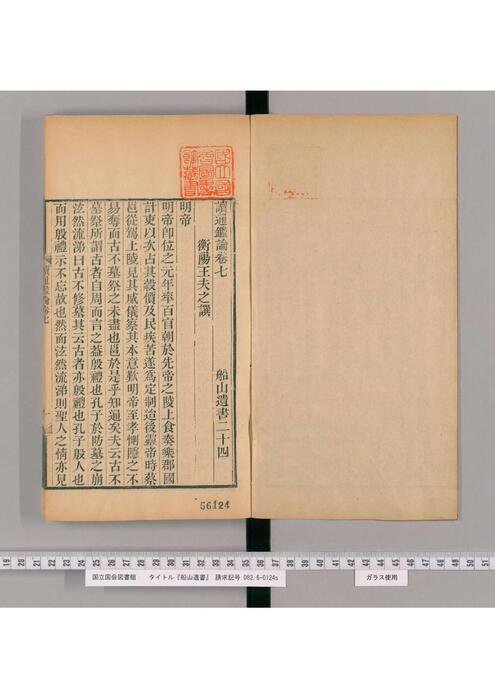 國立國
會圖書
館藏書
讀通鑑論卷七
船山遺書二十四
衡陽王夫之譔
明帝
明帝卽位之元年率百官朝於先帝之陵上食奏樂郡國
計吏以次占其穀價及民疾苦遂爲定制迨後靈帝時蔡
邕從駕上陵見其威儀察其本意歎明帝至孝惻隱之不
易奪而古不墓祭之未盡也邕於是乎知通矣夫云古不
墓祭所謂古者自周而言之蓋殷禮也孔子於防墓之崩
泫然流涕曰古不修墓其云古者亦殷禮也孔子殷人也
而用殷禮示不忘故也然而泫然流涕則聖人之情亦見
讀通鑑論卷七
56124
19 20 21 22 23 24 25 26 27 28 29 30 31 32 33 34 35 36 37 38 39 40 41 42 43 44 45 46 47 48 49 50 51
国立国会図書館 タイトル『船山遺書』 請求記号 082.6-0124s
ガラス使用